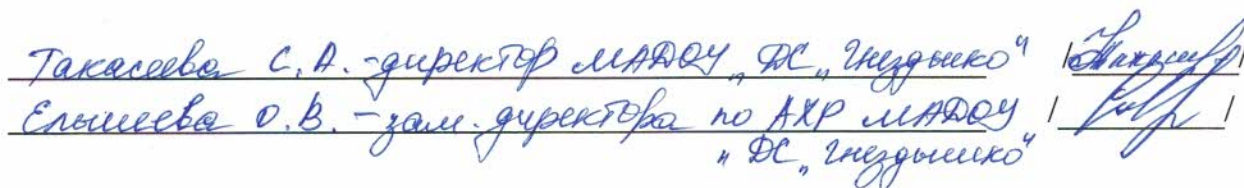 Такасеева С.А. - директор МАДОУ „ДС „Гнездышко“
Елышева О.В. - зам. директора по АХР МАДОУ
„ДС „Гнездышко“